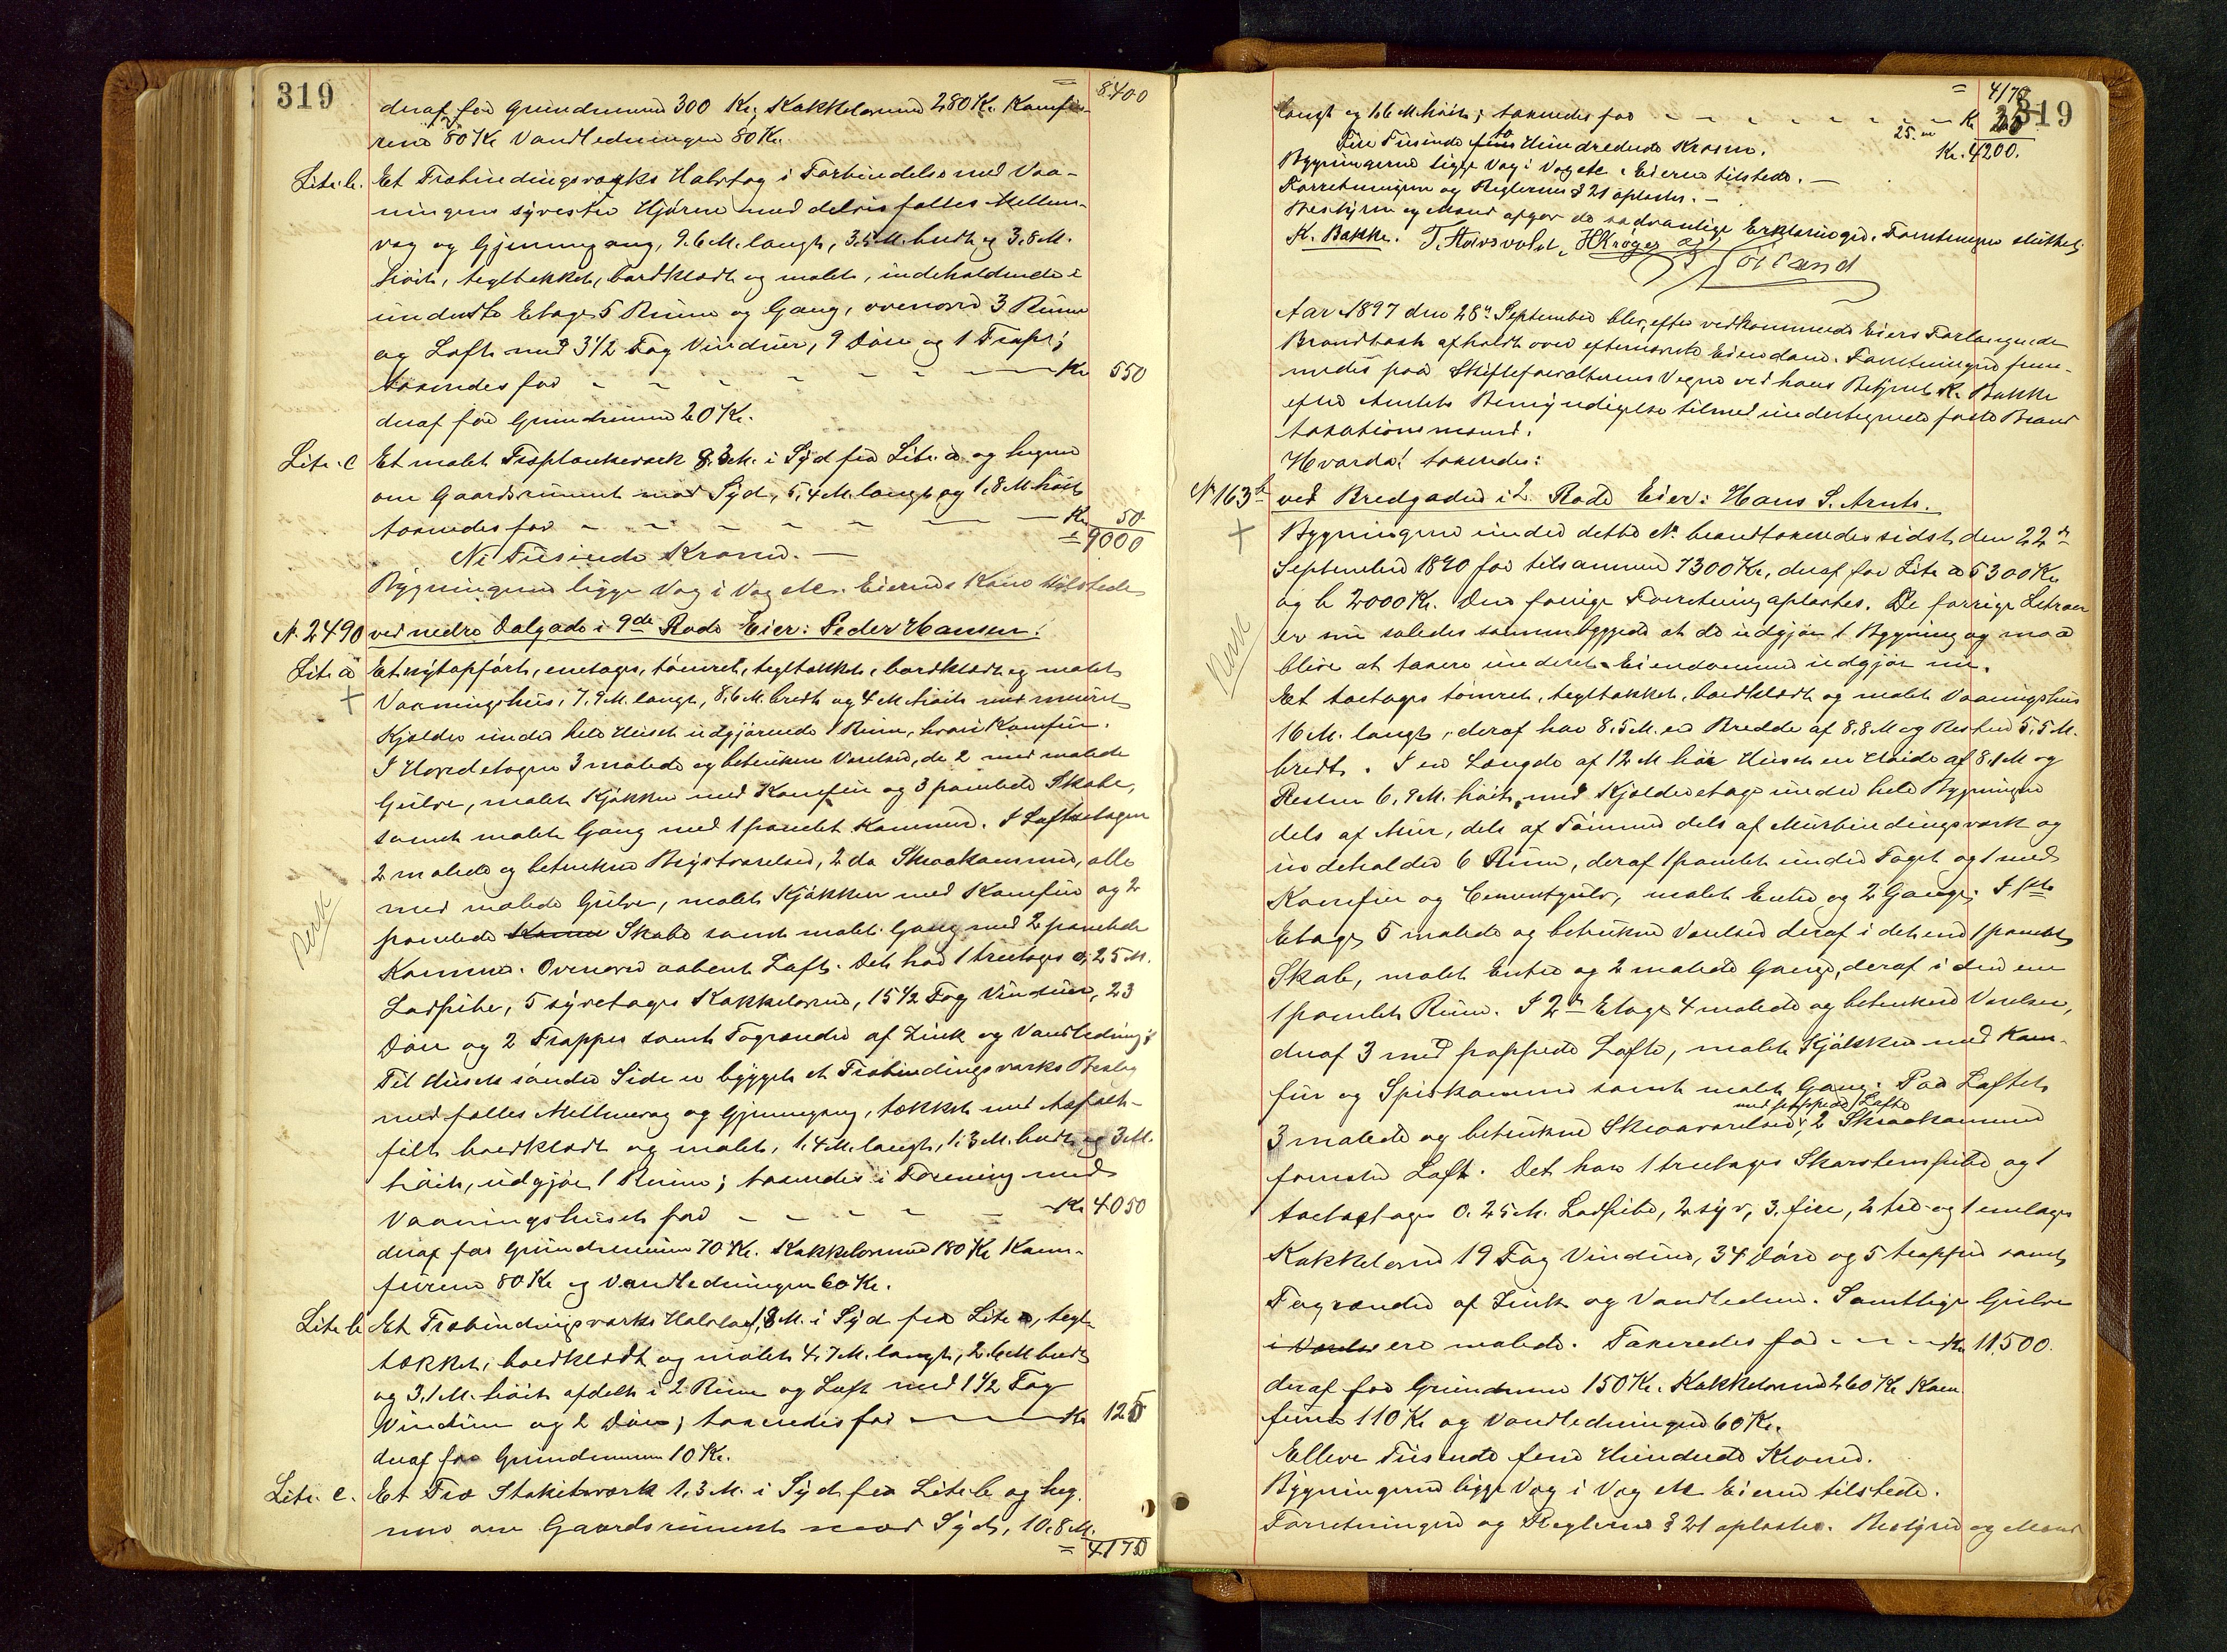 319
= 8.400
deraf for Grundmuren 300 Kr, Kakkelovnene 280 Kr. Komfu-
rene 80 Kr Vandledningen 80 Kr.
Litr. b. Et Træbindingsværks Halvtag i Forbindelse med Vaa-
ningens syvestre Hjørne med delvis fælles Mellem-
væg og Gjennemgang, 9.6 M. langt, 3.5 M. bredt og 3.8 M.
høit, tegltækket, bordklædt og malet, indeholdende i
underste Etage 5 Rum og Gang, ovenover 3 Rum
og Loft med 3 1/2 Fag Vinduer, 9 Døre og 1 Trappe;
taxeredes for - - - - - - - Kr 550
deraf for Grundmuren 20 Kr.
Litr. c Et malet Træplankeværk 8.3 M. i Syd fra Litr. a og hegner
om Gaardsrummet mod Syd, 5,4 M. langt og 1.8 M høit
taxeredes for - - - - - - - Kr 50
= 9000
Ni Tusinde Kroner. —
Bygningerne ligge Væg i Væg etc. Eierens Kone tilstede
N. 2490 ved nedre Dalgade i 9de Rode Eier: Peder Hansen.
Litr. a Et nyopført, enetages, tømret, tegltækket, bordklædt og malet
+ Vaaningshus, 7,9 M. langt, 8,6 M. bredt og 4 M høit med muret
Kjælder under hele Huset udgjørende 1 Rum, hvori Komfur.
I Hovedetagen 3 malede og betrukne Værelser, de 2 med malede
Gulve, malet Kjøkken med Komfur og 3 panelede Skabe,
samt malet Gang med 1 panelet Kammer. I Loftsetagen
2 malede og betrukne Kvistværelser, 2 do Skraakammer, alle
med malede Gulve, malet Kjøkken med Komfur og 2
panelede Kamm Skabe samt malet Gang med 2 panelede
Kammer. Ovenover aabent Loft. Det har 1 treetages 0,25 M.
Ladpibe, 5 syvetages Kakkelovne, 15 1/2 Fag Vinduer, 23
Døre og 2 Trapper samt Tagrender af Zink og Vandledning;
Til Husets søndre Side er bygget et Træbindingsværks Beslag
med fælles Mellemvæg og Gjennemgang, tækket med Asfalt-
filt bordklædt og malet, 1,4 M. langt, 1.3 M. bredt og 3 M.
høit, udgjør 1 Rum; taxeredes i Forening med
Vaaningshuset for - - - - - Kr 4050
deraf for Grundmuren 70 Kr. Kakkelovnene 180 Kr Kom-
furene 80 Kr og Vandledningen 60 Kr.
Litr b Et Træbindingsværks Halvtag 1,8 M. i Syd fra Litr a, tegl-
tækket, bordklædt og malet 4,7 M. langt, 2.6 M bredt
og 3,1 M. høit afdelt i 2 Rum og Loft med 1 1/2 Fag
Vinduer og 2 Døre; taxeredes for — — Kr 125
deraf for Grundmuren 10 Kr.
Litr. c. Et Træ Stakitværk 1,3 M. i Syd fra Litr b og heg-
ner om Gaardsrummet mod Syd, 10.8 M.
= 4175
319
= 4175
langt og 1.6 M høit; taxeredes for - - - - - - - Kr 25
25. —
Kr. 4200.
Fire Tusinde to Hundrede Kroner.
Bygningerne ligge Væg i Væg etc. Eierne tilstede. —
Forretningen og Reglernes § 21 oplæstes. —
Bestyrer og Mænd afgav de sædvanlige Erklæringer. Forretningen sluttet.
K. Bakke. T. Haavvolst, H Krøger
Aar 1897 den 28de September blev, efter vedkommende Eiers Forlangende
Brandtaxt afholdt over efternævnte Eiendom. Forretningen frem-
medes paa Skifteforvalterens Vegne ved hans Betjent K. Bakke
efter Amtets Bemyndigelse tilmed undertegnede faste Brand
taxationsmænd.
Hvorda! taxeredes:
N 163b ved Bredgaden i 2. Rode Eier: Hans S. Arnts.
+ Bygningerne under dette No brandtaxeredes sidst den 22de
September 1890 for tilsammen 7300 Kr, deraf for Litr a 5300 Kr
og b 2000 Kr. Den forrige Forretning oplæstes. De forrige Litraer
er nu saaledes sammenbyggede at de udgjør 1 Bygning og maa
blive at taxere under et. Eiendommen udgjør nu.
Et toetages tømret, tegltækket, bordklædt og malet Vaaningshus
16 M. langt, deraf har 8,5 M. en Bredde af 8,8 M og Resten 5,5 M.
bredt. I en Længde af 12 M har Huset en Høide af 8,1 M og
Resten 6,9 M. høit, med Kjælderetage under hele Bygningen
dels af Mur, dels af Tømmer dels af Murbindingsværk og
indeholder 6 Rum, deraf 1 panelet under Taget og 1 med
Komfur og Cementgulv, malet Entre og 2 Gange; I 1ste
Etage 5 malede og betrukne Værelser deraf i det ene 1 panelet
Skab, malet Entre og 2 malede Gange, deraf i den ene
1 panelet Rum. I 2den Etage 4 malede og betrukne Værelser,
deraf 3 med pappede Lofte, malet Kjøkken med Kom-
fur og Spiskammer samt malet Gang. Paa Loftet
med pappede Lofte
3 malede og betrukne Skraaværelser, 2 Skraakammer
foruden Loft. Det har 1 treetages Skorstenspibe og 1
toetages 0.25 M. Ladpibe, 2 syv, 3. fire, 2 tre og 1 enetages
Kakkelovne 19 Fag Vinduer, 34 Døre og 5 trapper samt
Tagrender af Zink og Vandledn. Samtlige Gulve
i Værelser ere malede. Taxeredes for - - - - Kr 11,500.
deraf for Grundmuren 150 Kr. Kakkelovnene 260 Kr Kom
furene 110 Kr og Vandledningen 60 Kr.
Elleve Tusinde fem Hundrede Kroner.
Bygningerne ligge Væg i Væg etc Eieren tilstede.
Forretningen og Reglernes § 21 oplæstes. Bestyrer og Mænd